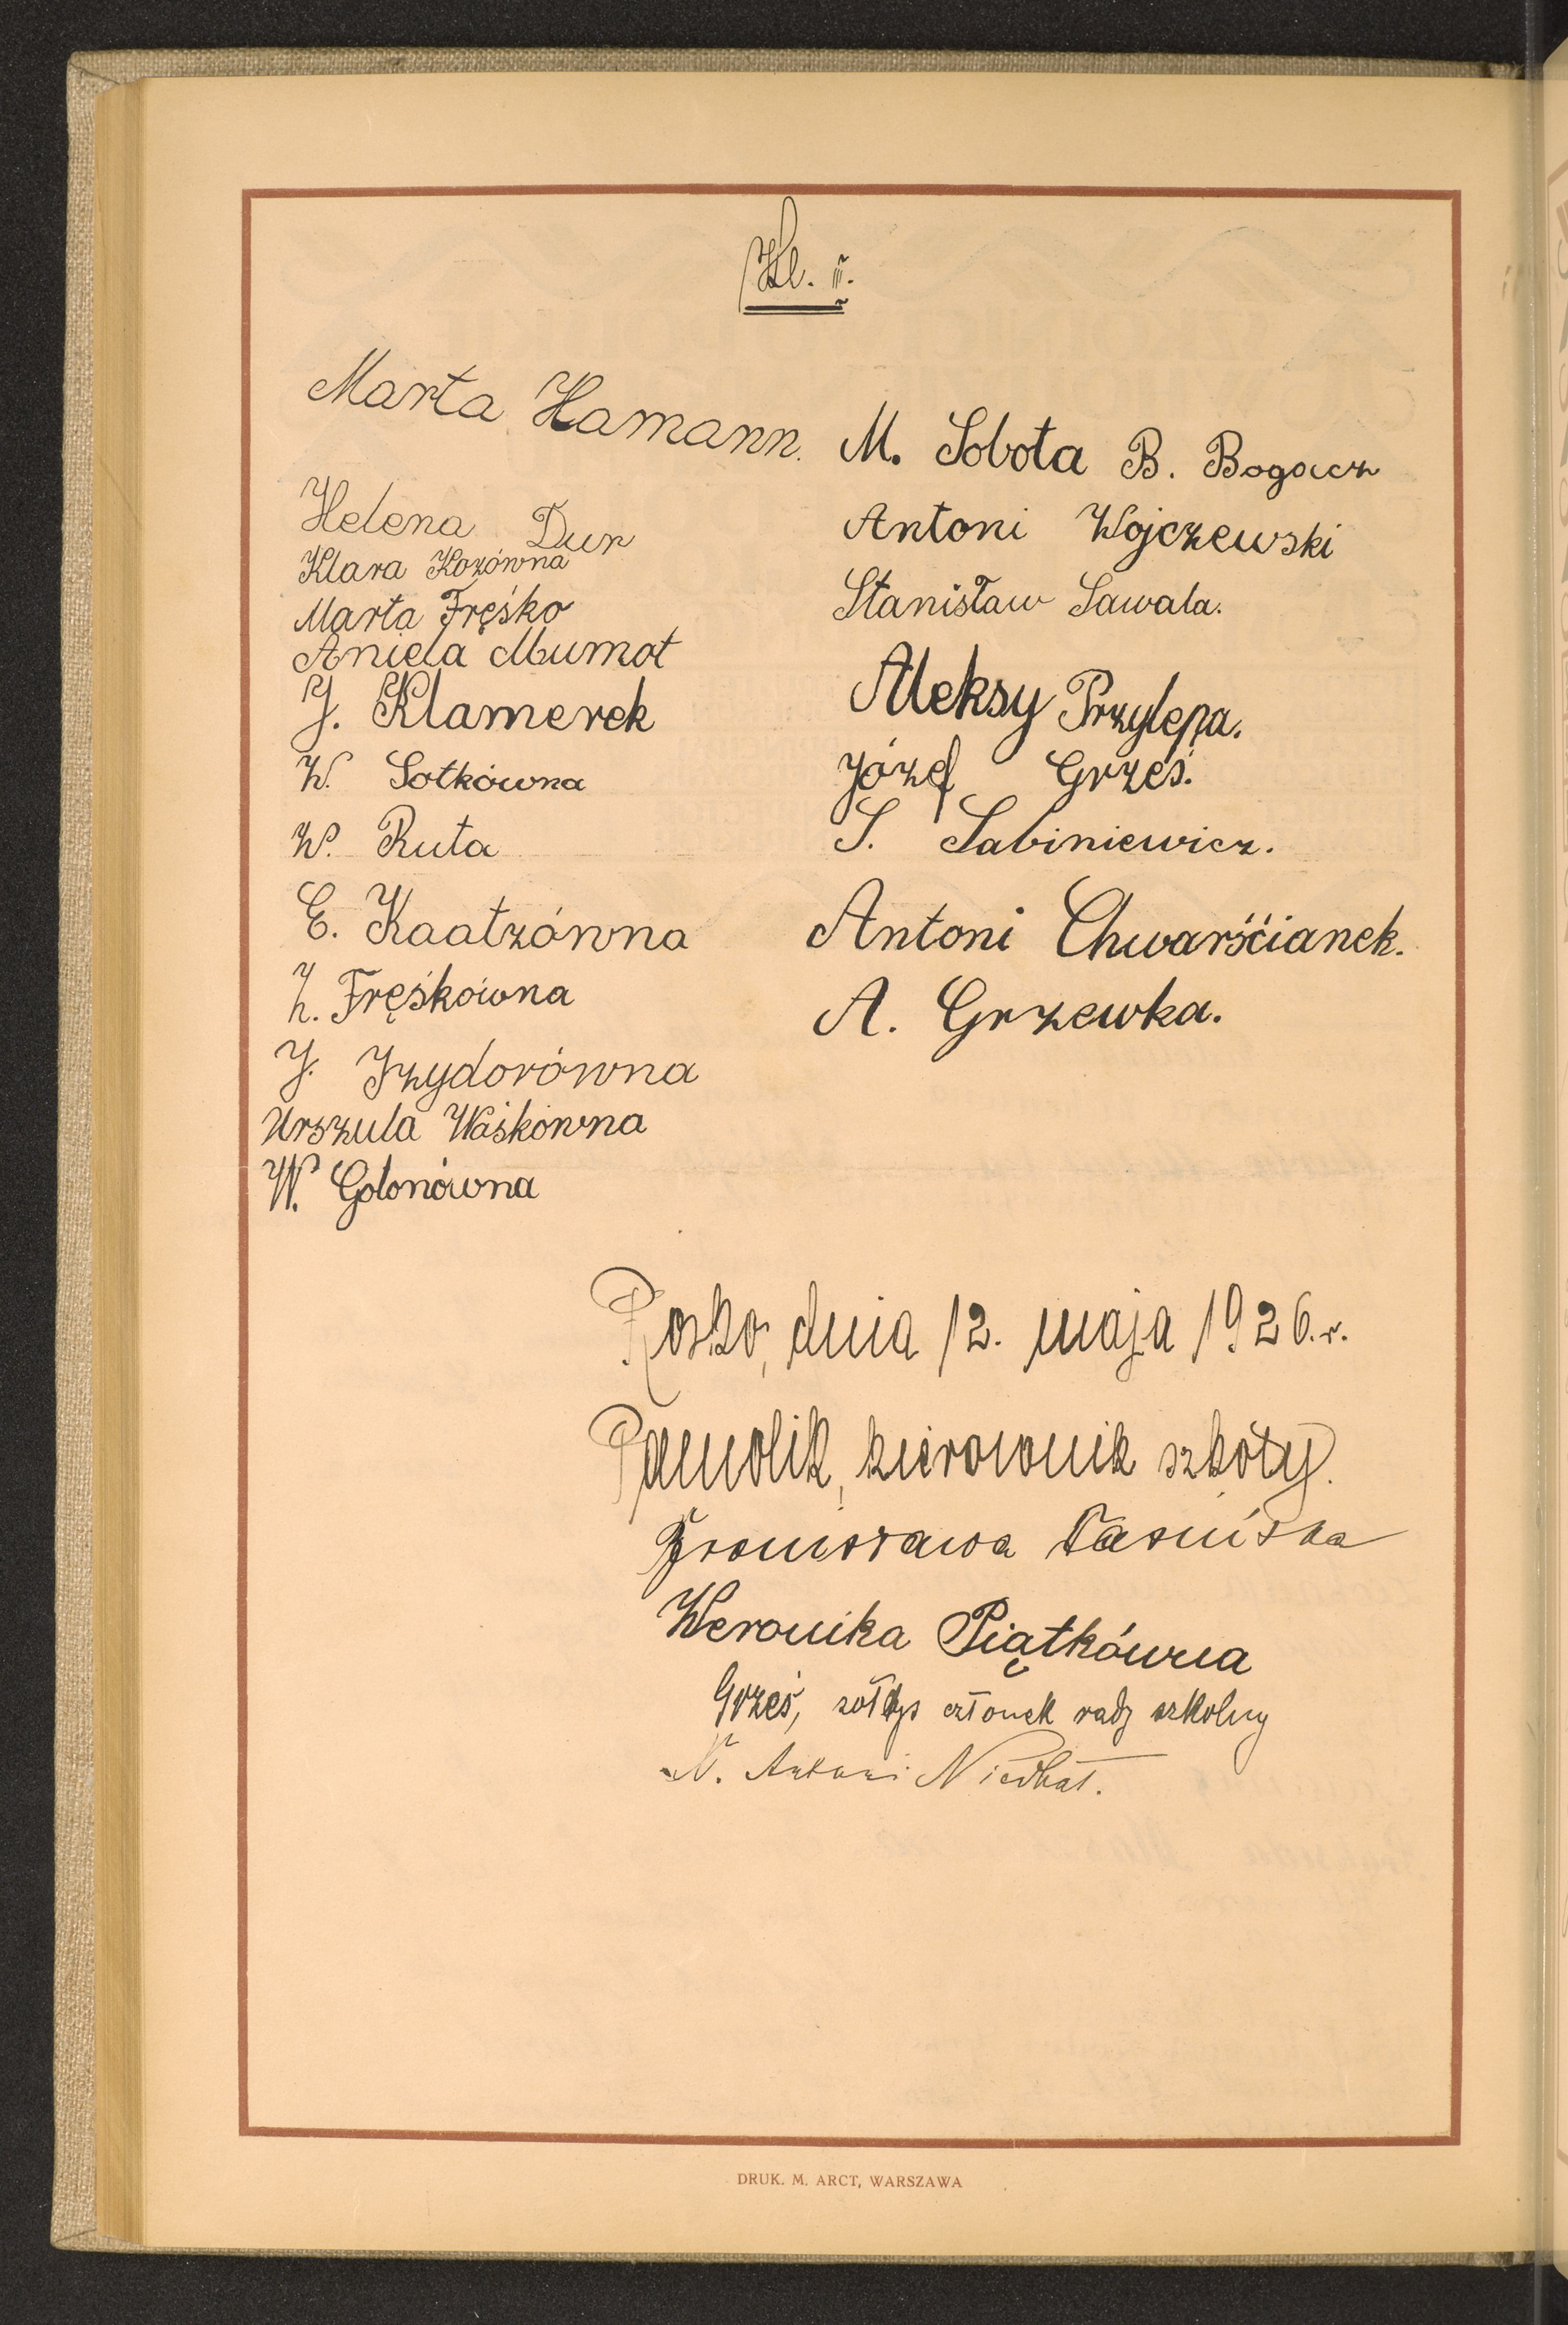 Kl. II.
Marta Hamann.
Helena Dur
Klara Kozówna
Marta Fręśko
Aniela Mumot
J. Klamerek
W. Sotkówna
W. Ruta
E. Kaatzówna
Fręśkówna
J. Izydorówna
Urszula Waśkówna
W. Golonówna
M. Sobota B. Bogacz
Antoni Wojczewski
Stanisław Sawala.
Aleksy Przylepa.
Józef Grześ.
S. Sabiniewicz.
Antoni Chwarśćianek.
A. Grzewka.
Rosko, dnia 12. maja 1926.r.
kierownik szkoły.
Weronika Piątkówna
Grześ, sołtys członek rady szkolny
Antoni
DRUK. M. ARCT, WARSZAWA